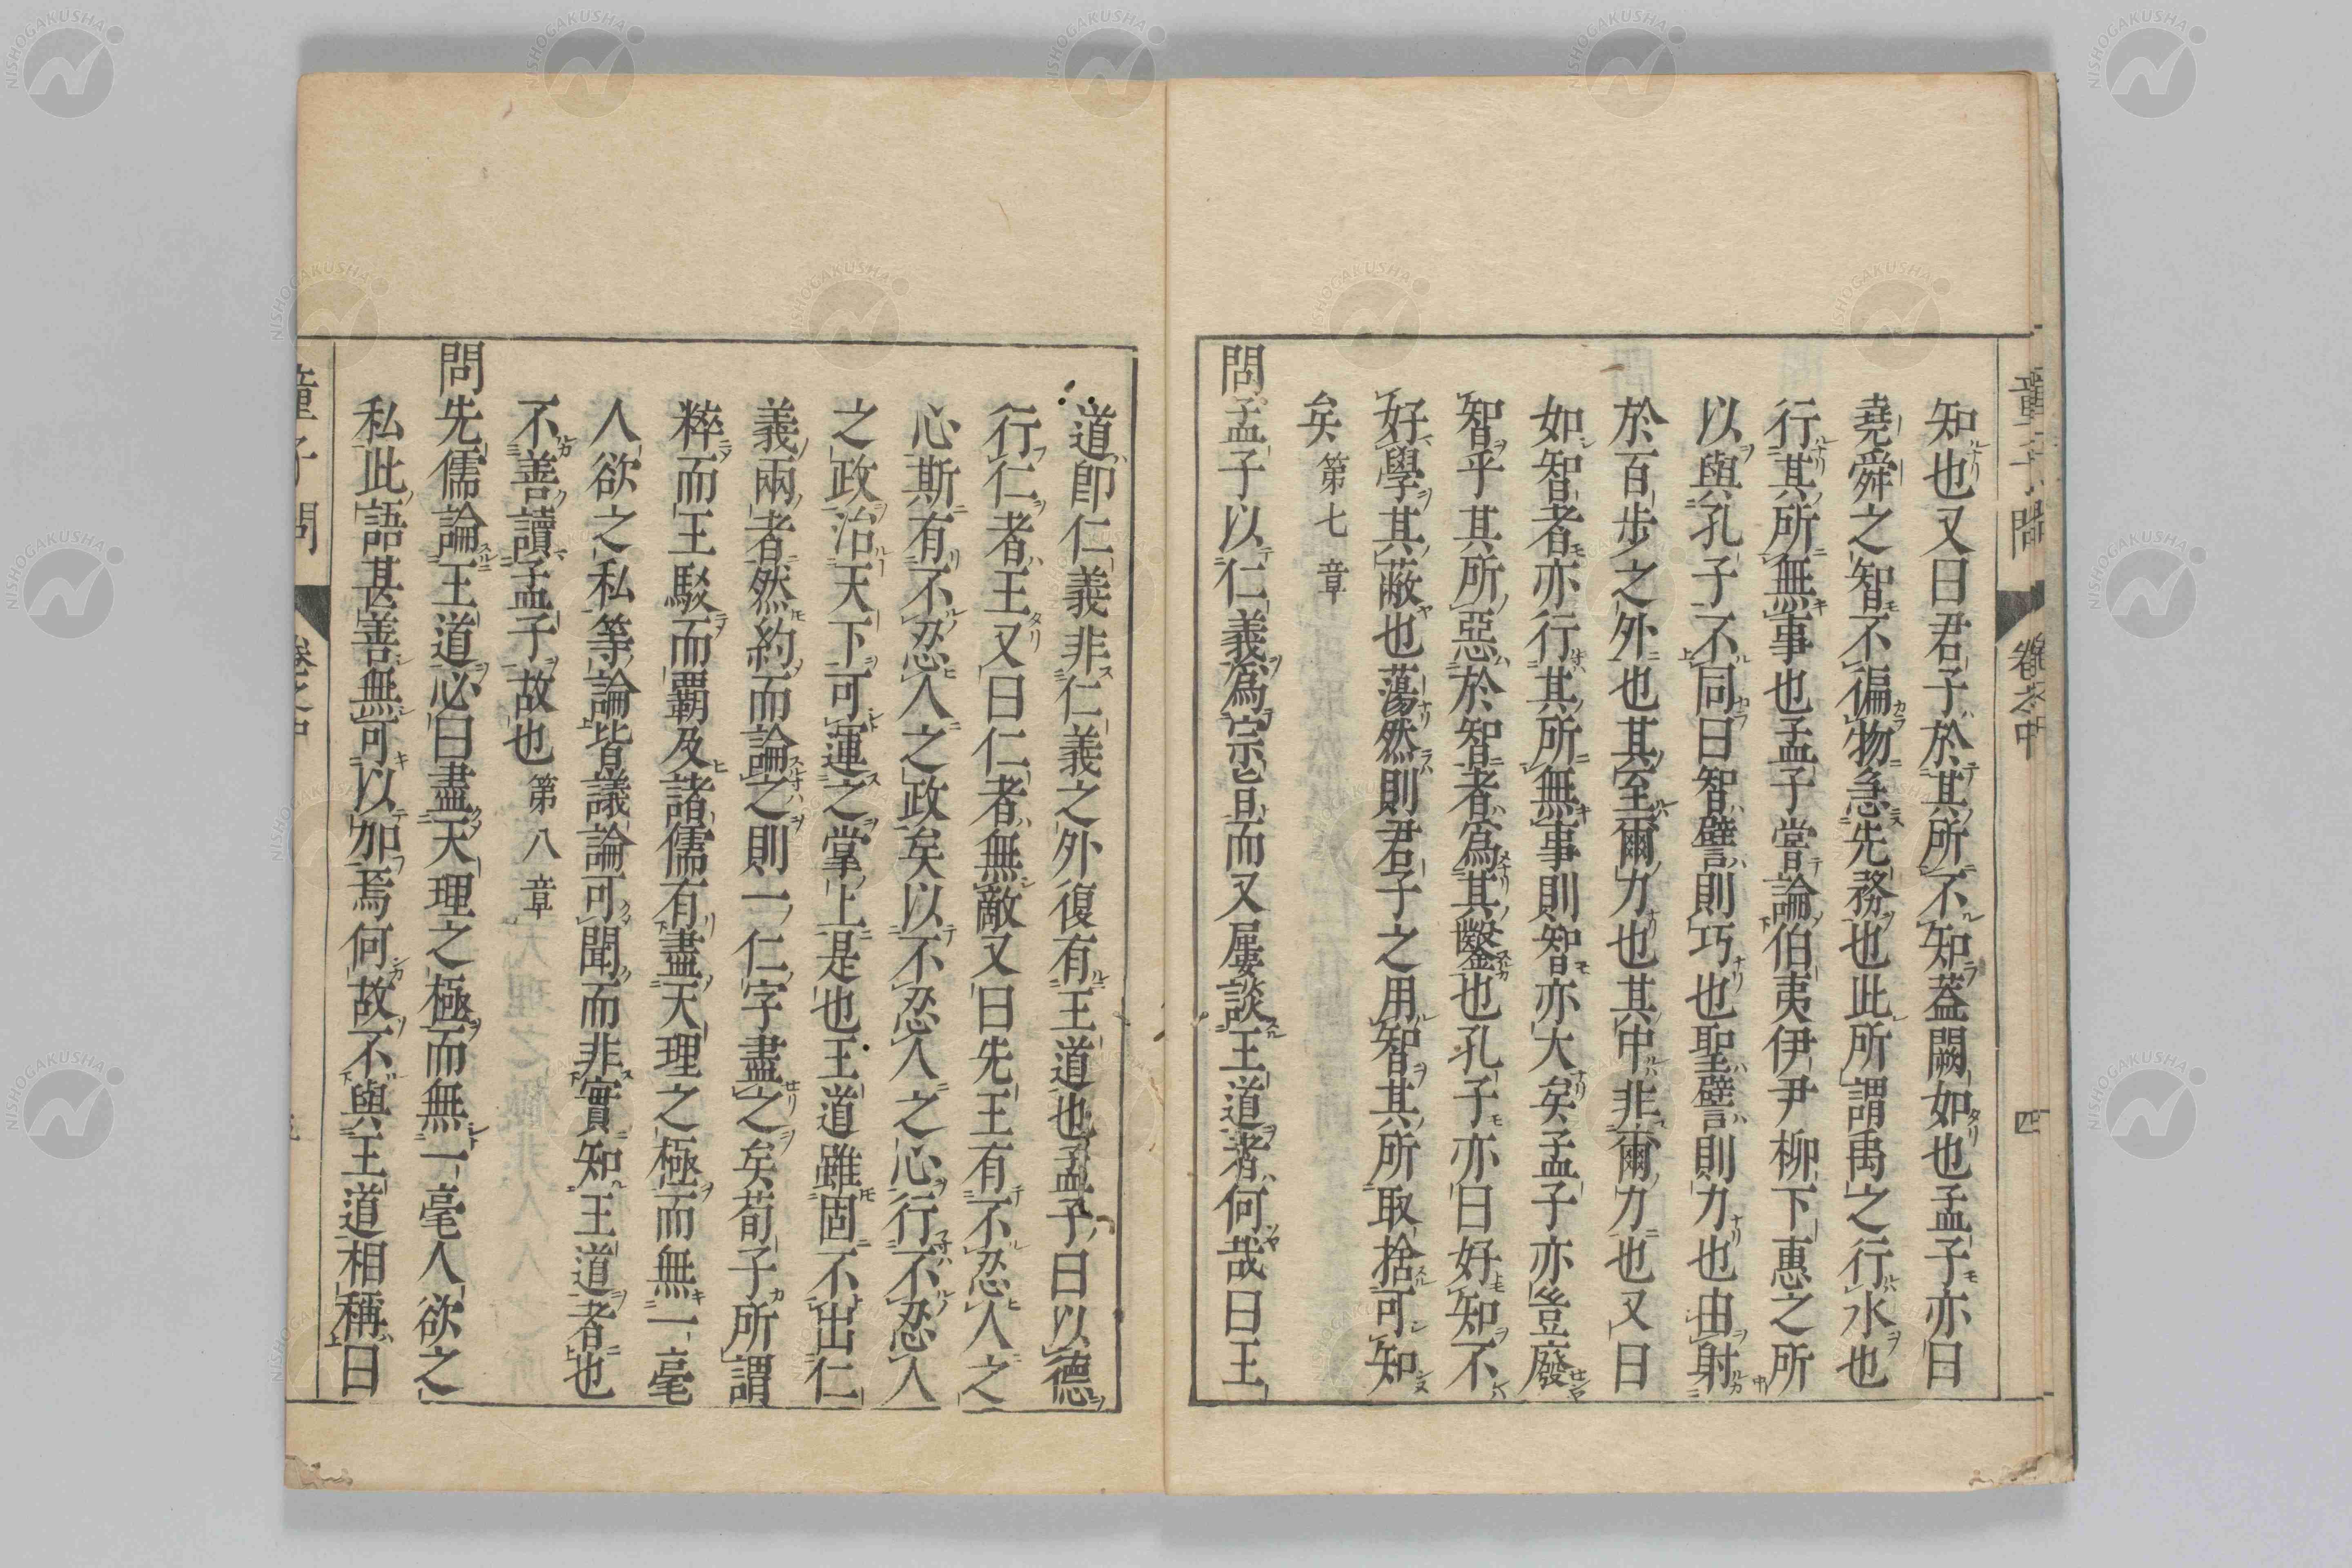 知也又曰君子於其所不知蓋闕如也孟子亦曰
堯舜之智不徧物急先務也此所謂禹之行水也
行其所無事也孟子嘗論伯夷伊尹柳下惠之所
以與孔子不同曰智譬則巧也聖譬則力也由射
於百步之外也其至爾力也其中非爾力也又曰
如智者亦行其所無事則智亦大矣孟子亦豈廢
智乎其所惡於智者爲其鑿也孔子亦曰好知不
好學其蔽也蕩然則君子之用智其所取捨可知
矣 第七章
問孟子以仁義爲宗旨而又屢談王道者何哉曰王
童子問 卷之中 四
道卽仁義非仁義之外復有王道也孟子曰以德
行仁者王又曰仁者無敵又曰先王有不忍人之
心斯有不忍人之政矣以不忍人之心行不忍人
之政治天下可運之掌上是也王道雖固不出仁
義兩者然約而論之則一仁字盡之矣荀子所謂
粹而王駁而覇及諸儒有盡天理之極而無一毫
人欲之私等論皆議論可聞而非實知王道者也
不善讀孟子故也 第八章
問先儒論王道必曰盡天理之極而無一毫人欲之
私此語甚善無可以加焉何故不與王道相稱曰
童子問 卷之中
NISHOGAKUSHA